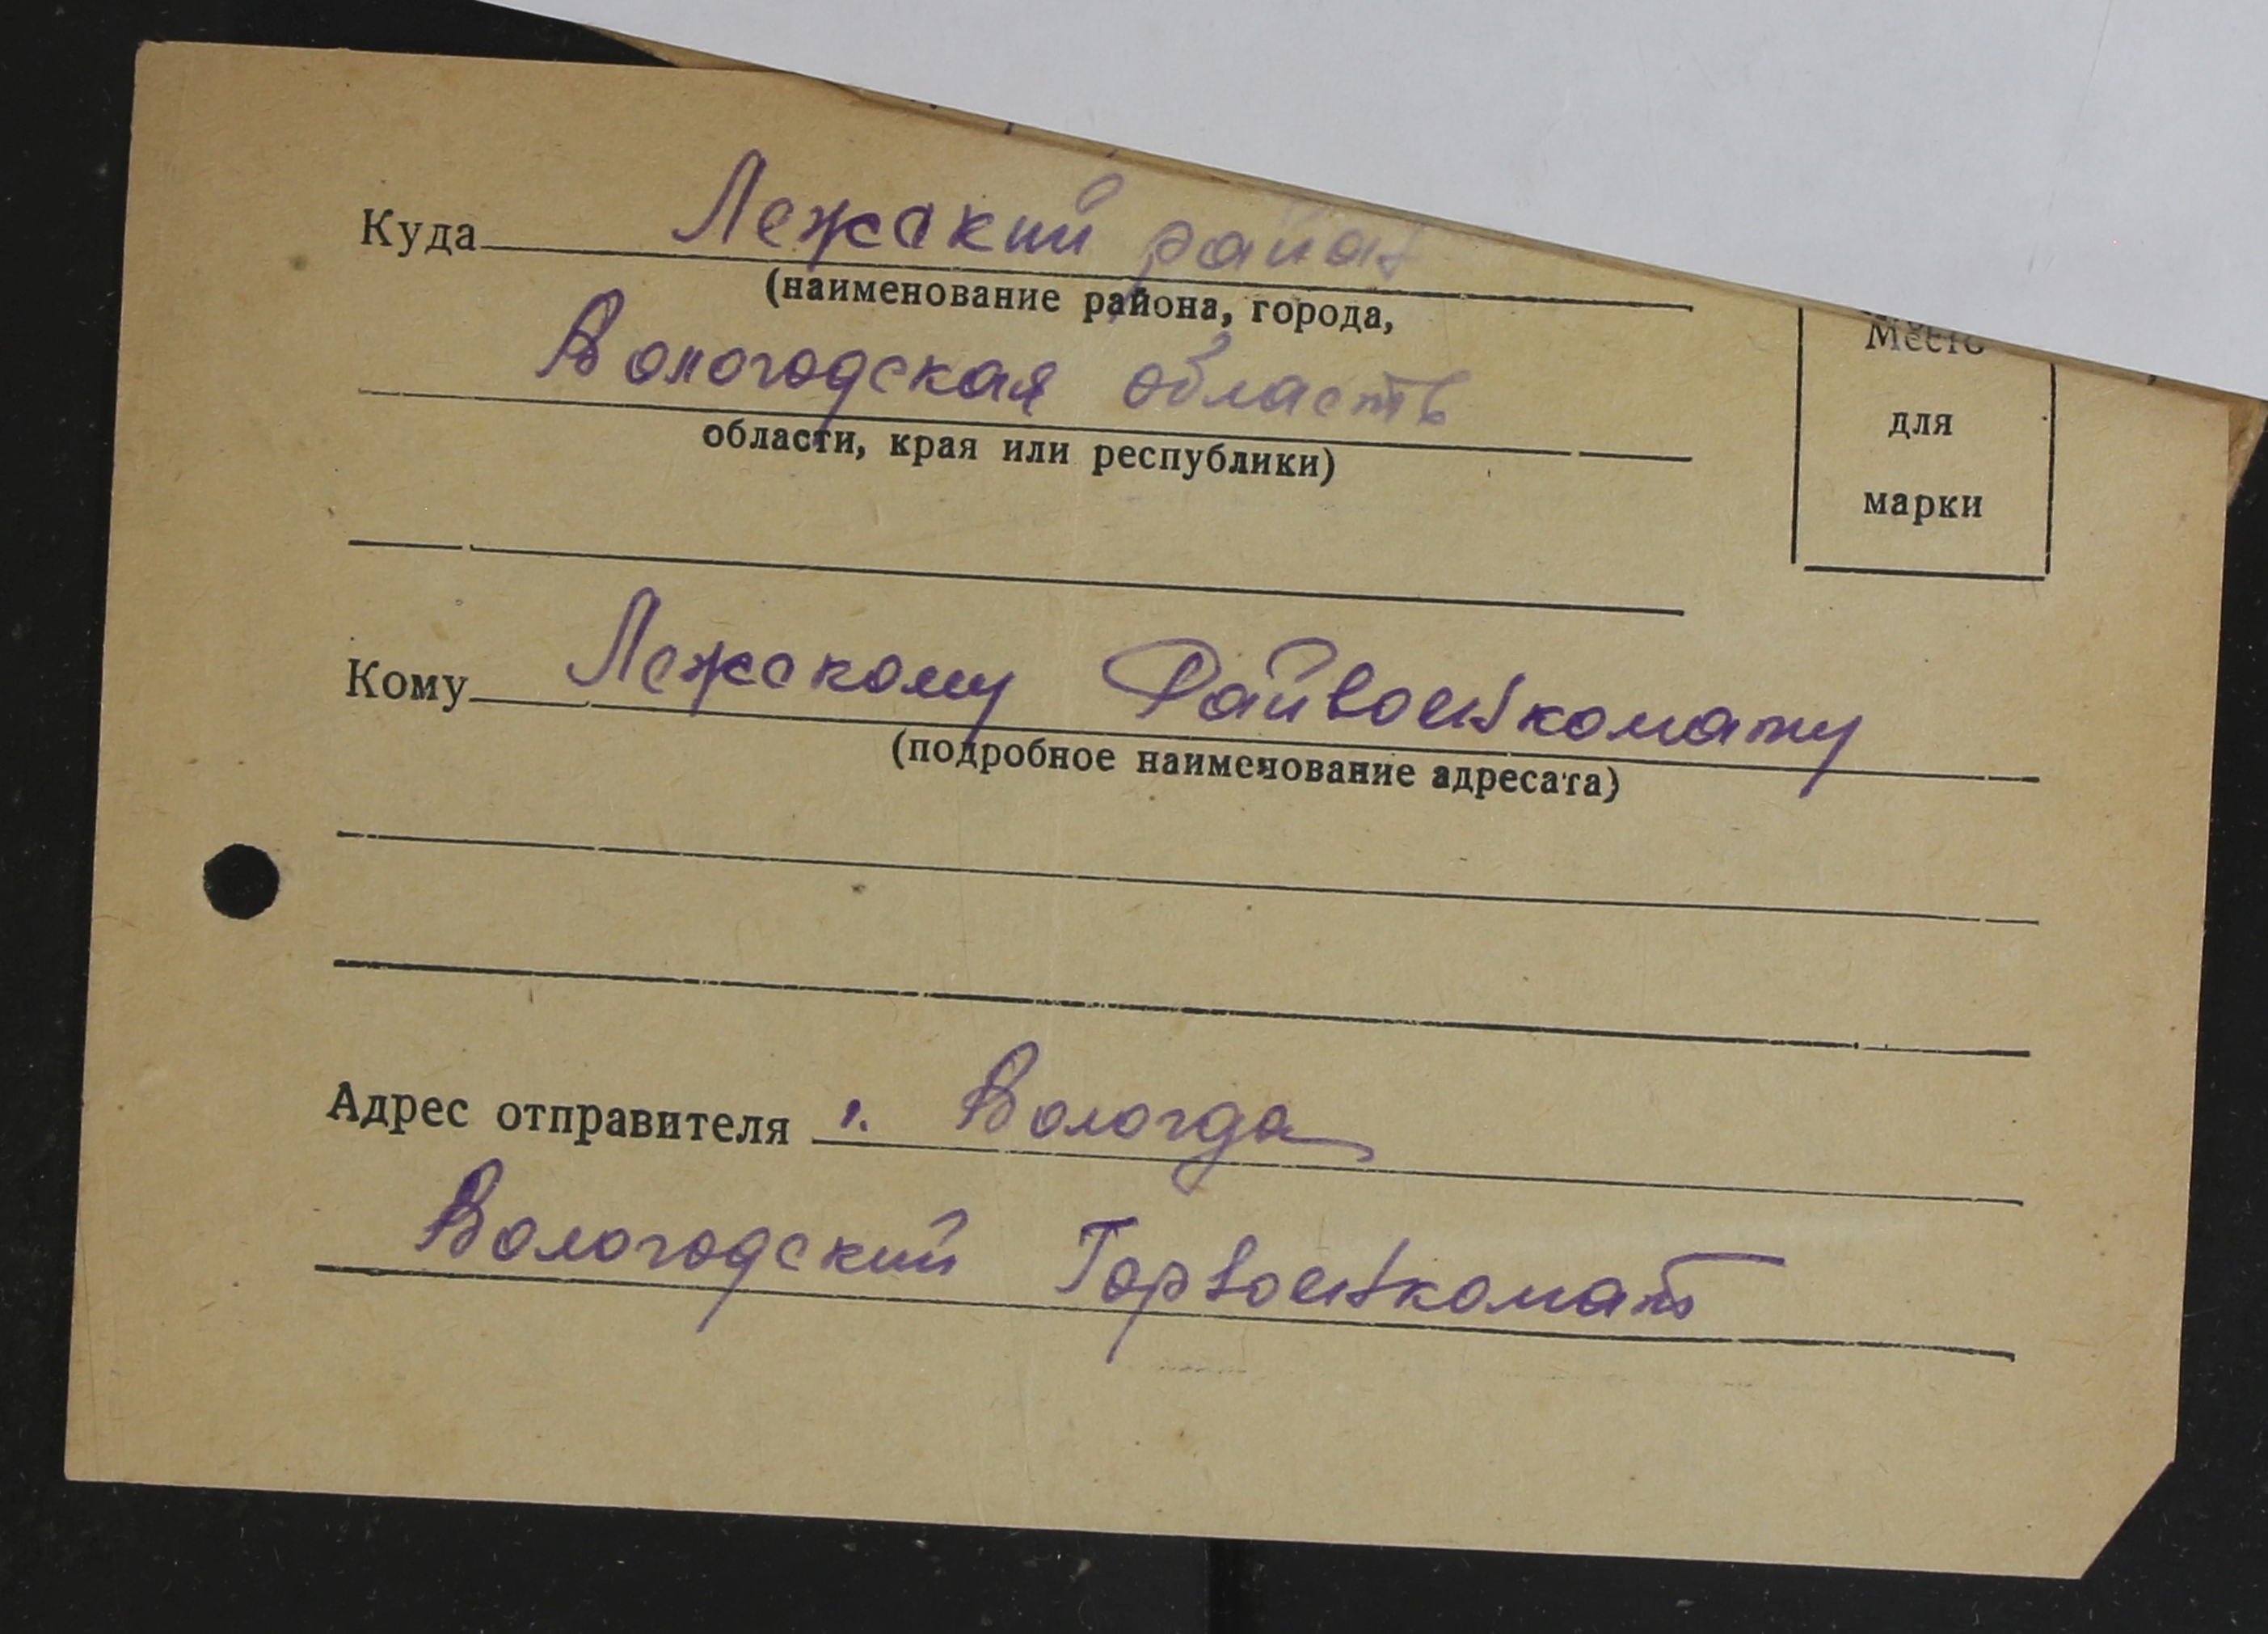 Куда Лежский район
(наименование района, города,
Вологодская область
области, края или республики)
Место
для
марки
Кому Лежскому Райвоенкомату
(подробное наименование адресата)
Адрес отправителя г. Вологда
Вологодский Горвоенкомат